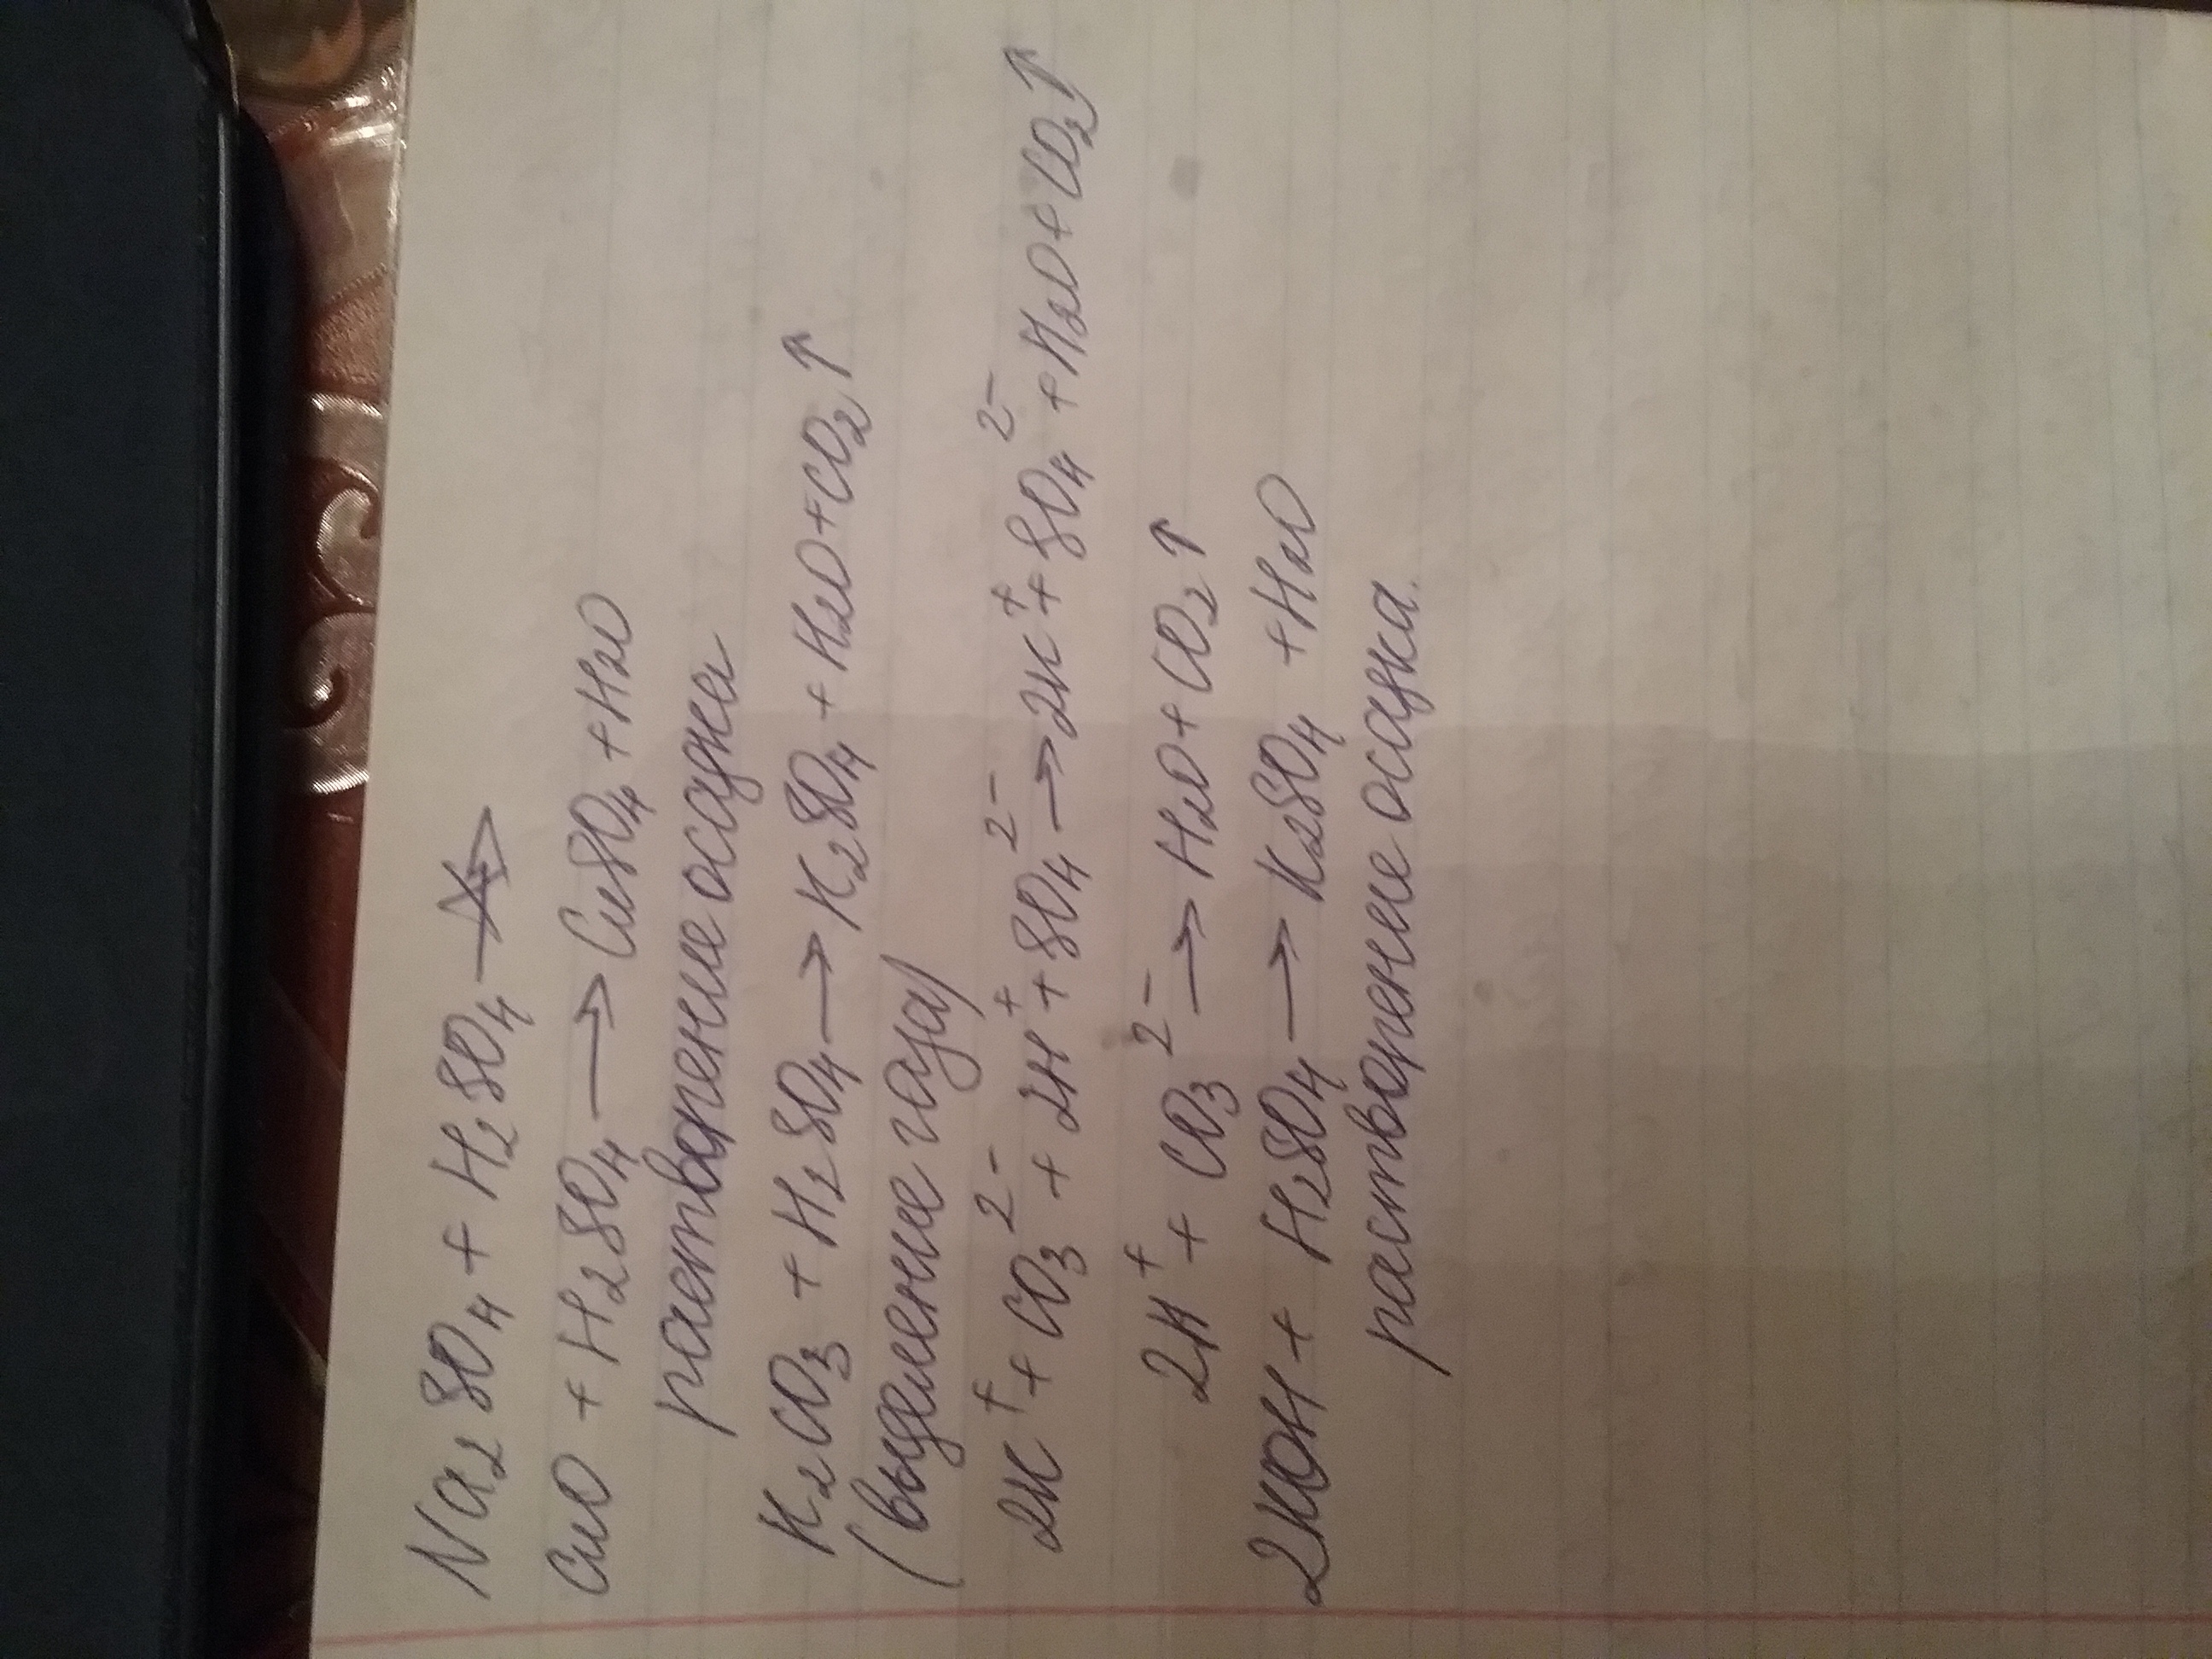 Na₂SO₄ + H₂SO₄ ↛
CuO + H₂SO₄ → CuSO₄ + H₂O
растворение осадка
K₂CO₃ + H₂SO₄ → K₂SO₄ + H₂O + CO₂↑
(выделение газа)
2K⁺ + CO₃²⁻ + 2H⁺ + SO₄²⁻ → 2K⁺ + SO₄²⁻ + H₂O + CO₂↑
2H⁺ + CO₃²⁻ → H₂O + CO₂↑
2KOH + H₂SO₄ → K₂SO₄ + H₂O
растворение осадка.